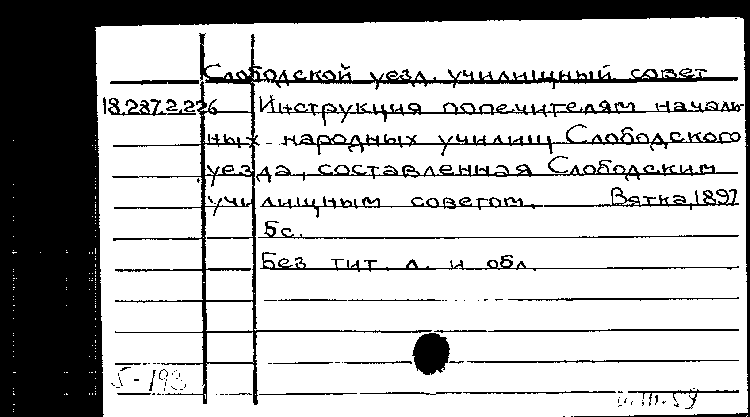 Слободской уезд. училищный совет
18.287.2.226 Инструкция попечителям началь
ных народных училищ Слободского
уезда, составленная Слободским
училищным советом. Вятка, 1897
5с.
Без тит. л. и обл.
5-193